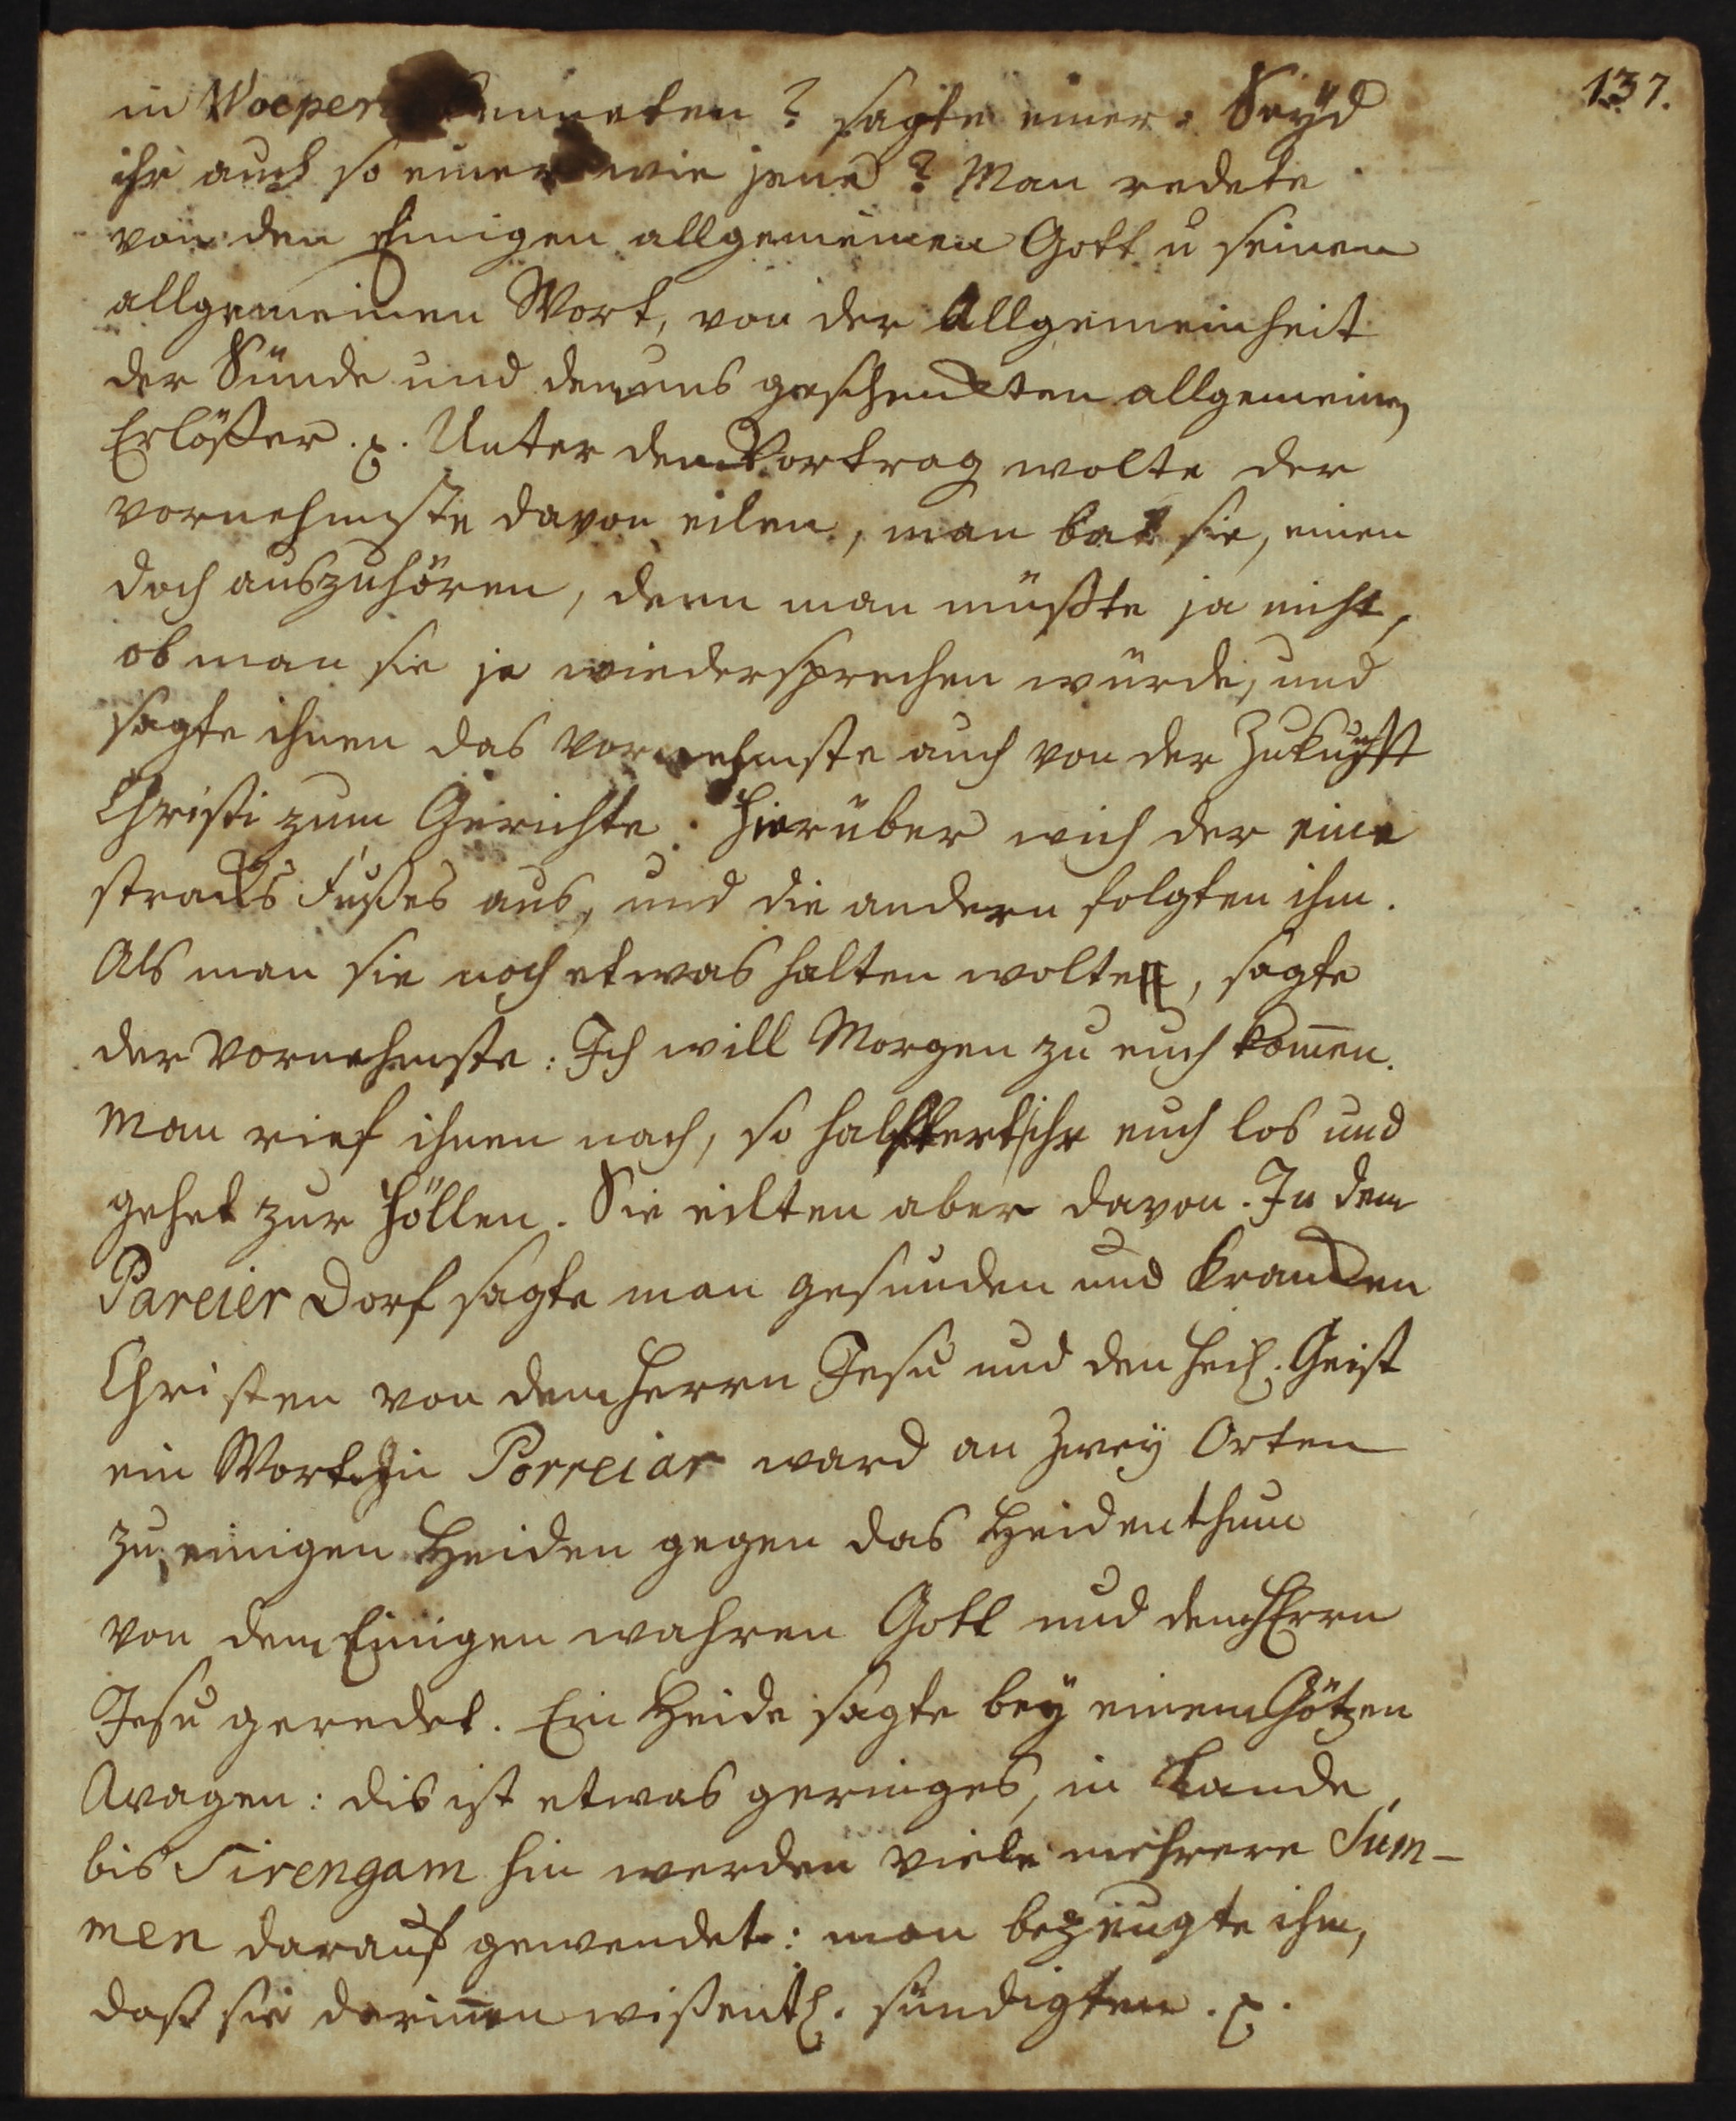 137.
in Woeper nneten? sagte einer: Seyd
ihr auch so einer wie jene? Man redete
von den Einigen allgemeinen Gott u seinen
allgemeinen Wort, von der Allgemeinheit
der Sünde und dem uns geschenckten allgemeinen
Erlößer. p. Unter dem Vortrag wolte der
vornehmste davon eilen, man bat sie, einen
doch auszuhören, denn man müßte ja nicht,
ob man sie je wiedersprechen würde, und
sagte ihnen das vornehmste auch von der Zukunfft
Christi zum Gerichte. Hierüber wich der eine
stracks Fußes aus, und die andern folgten ihm.
Als man sie noch etwas halten wolte, sagte
der Vornehmste: Ich will Morgen zu euch kom̄en.
Man rief ihnen nach, so halfftert ihr euch los und
gehet zur Höllen. Sie eilten aber davon. In dem
Pareier Dorf sagte man gesunden und krancken
Christen von dem Herrn Jesu und den Heil. Geist
ein Wort. In Porreiar ward an zwey Orten
zu einigen Heiden gegen das Heidenthum
von dem Einigen wahren Gott und dem HErrn
Jesu geredet. Ein Heide sagte bey einem Götzen
Wagen: dis ist etwas geringes, in Lande
bis Sirengam hin werden viele mehrere Sum-
men darauf gewendet: man bezeugte ihm,
daß sie dariñen wißentl. sündigten. p.